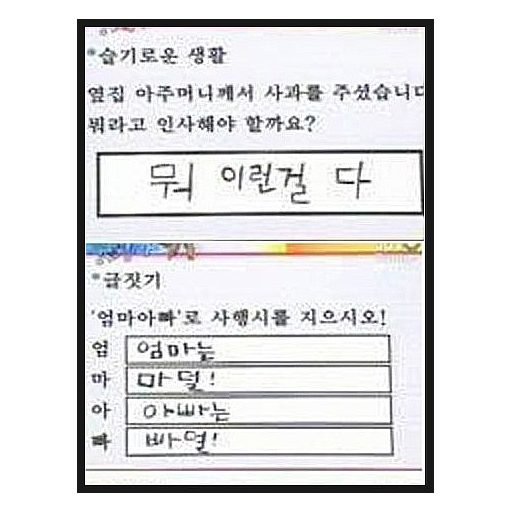 *슬기로운 생활
옆집 아주머니께서 사과를 주셨습니다
뭐라고 인사해야 할까요?
뭐 이런걸 다
*글짓기
'엄마아빠'로 사행시를 지으시오!
엄 엄마는
마 마덜!
아 아빠는
빠 빠덜!